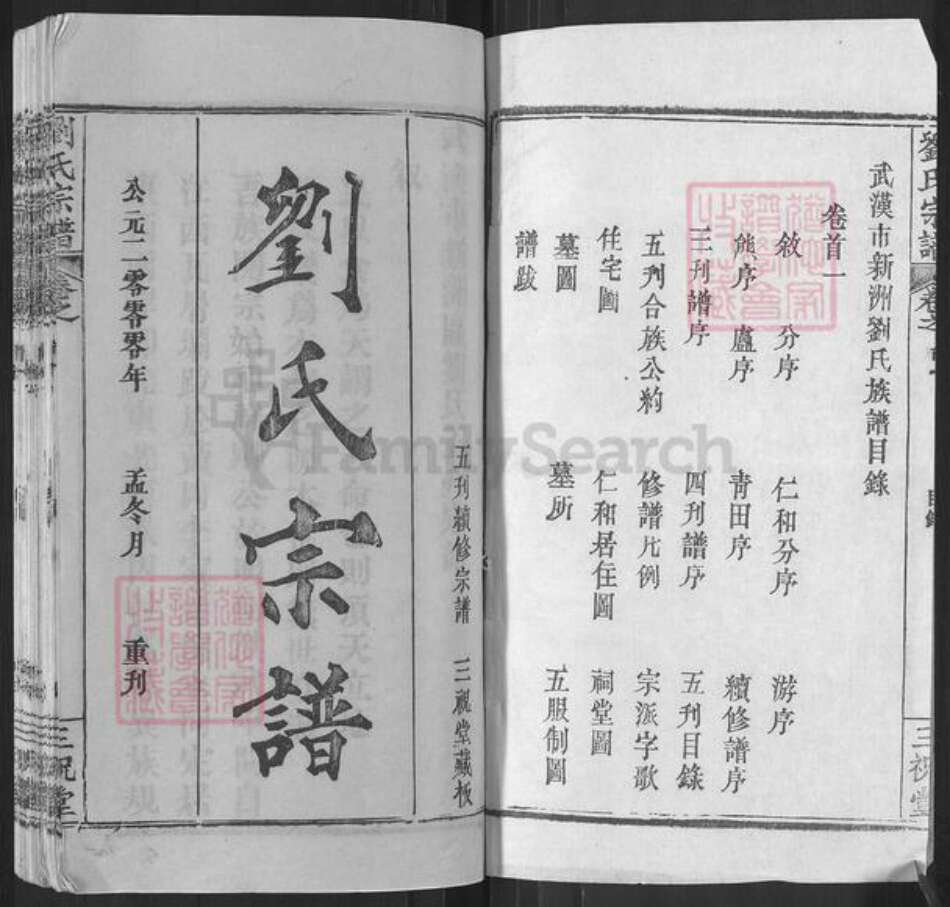 劉氏宗譜 卷之首一 目錄 三祝堂
武漢市新洲劉氏族譜目錄
卷首一
敘 分序 仁和分序 游序
熊序 盧序 青田序 續修譜序
三刊譜序 四刊譜序 五刊目錄
五刋合族公約 修譜凡例 宗派字歌
住宅圖 仁和居住圖 祠堂圖
墓圖 墓所 五服制圖
譜跋
五刊續修宗譜 三祝堂藏板
劉氏宗譜
公元二零零零年 孟冬月 重刊
劉氏宗譜 卷之 三祝堂
FamilySearch